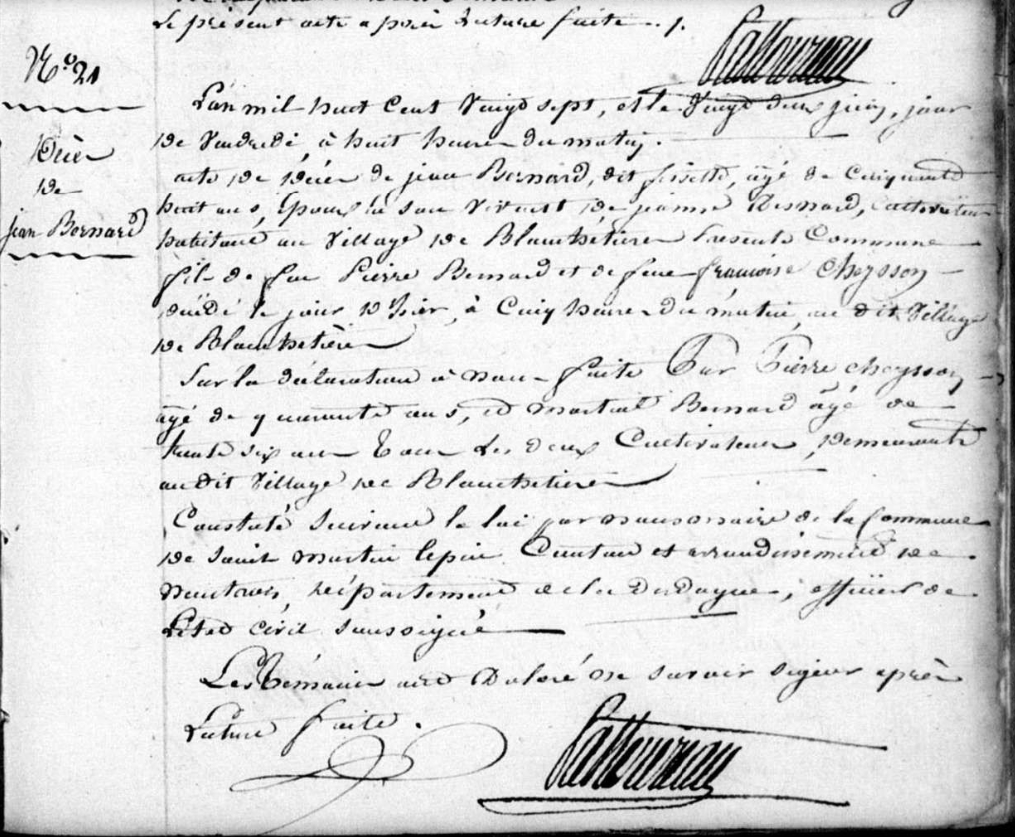 Le présent acte après lecture faite ./.
N.º 21
Décès
de
jean Bernard
L'an mil huit Cent Vingt sept, et le Vingt deux juin, jour
de Vendredi, à huit heures du matin.
acte de décès de jean Bernard, dit, âgé de Cinquante
huit ans, Epoux à son Vivant de jeanne, Cultivateur
habitant au Village de Blanchetière présente Commune
fils de feu Pierre Bernard et de feue françoise Cheysson
décédé le jour d'hier, à Cinq heures du matin, au dit Village
de Blanchetière
Sur la déclaration à nous faite Par Pierre cheysson
âgé de quarante ans, et martial Bernard âgé de
trente six ans Tous Les deux Cultivateurs, demeurants
au dit Village de Blanchetière
Constaté Suivant la loi par nous maire de la Commune
de saint martin lepin Canton et arrondissement de
nontron, département de la Dordogne, officier de
L'état civil Soussigné
Les témoins ont Déclaré ne savoir signer après
Lecture faite.